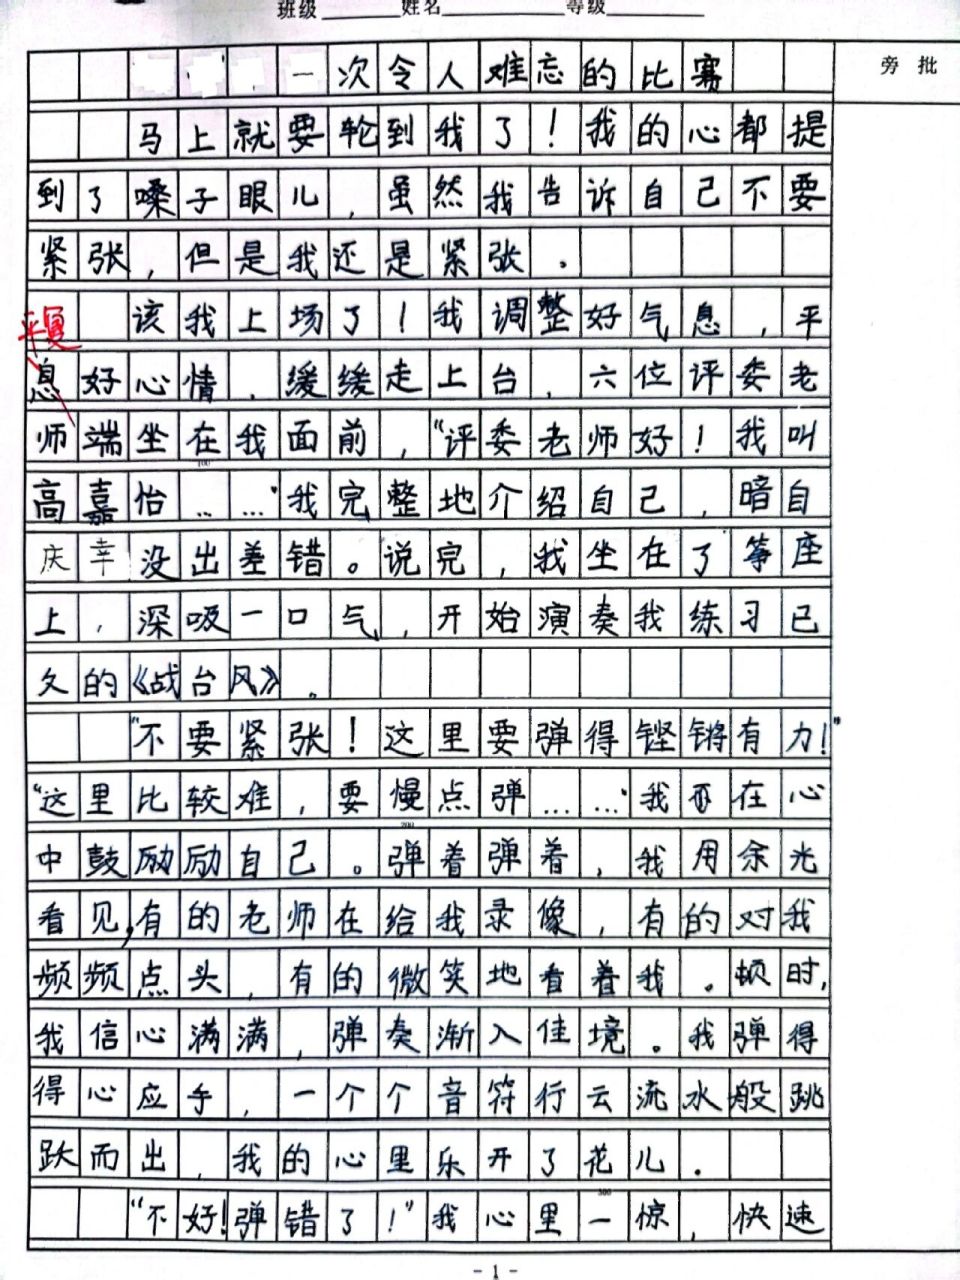 班级________姓名__________等级________
旁批
一次令人难忘的比赛
马上就要轮到我了！我的心都提
到了嗓子眼儿，虽然我告诉自己不要
紧张，但是我还是紧张。
该我上场了！我调整好气息，平
平复
息好心情，缓缓走上台，六位评委老
师端坐在我面前，“评委老师好！我叫
100
高嘉怡……”我完整地介绍自己，暗自
庆幸没出差错。说完，我坐在了筝座
上，深吸一口气，开始演奏我练习已
久的《战台风》。
“不要紧张！这里要弹得铿锵有力！”
“这里比较难，要慢点弹……”我在心
200
中鼓励励自己。弹着弹着，我用余光
看见，有的老师在给我录像，有的对我
频频点头，有的微笑地看着我。顿时，
我信心满满，弹奏渐入佳境。我弹得
得心应手，一个个音符行云流水般跳
跃而出，我的心里乐开了花儿。
300
“不好！弹错了！”我心里一惊，快速
- 1 -